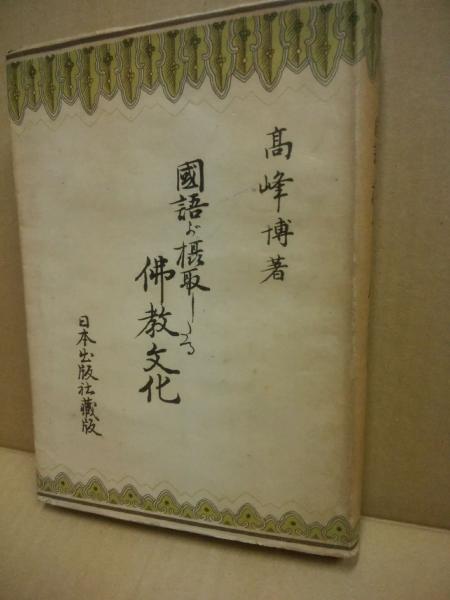 髙峰博著
國語が摂取したる
佛教文化
日本出版社藏版